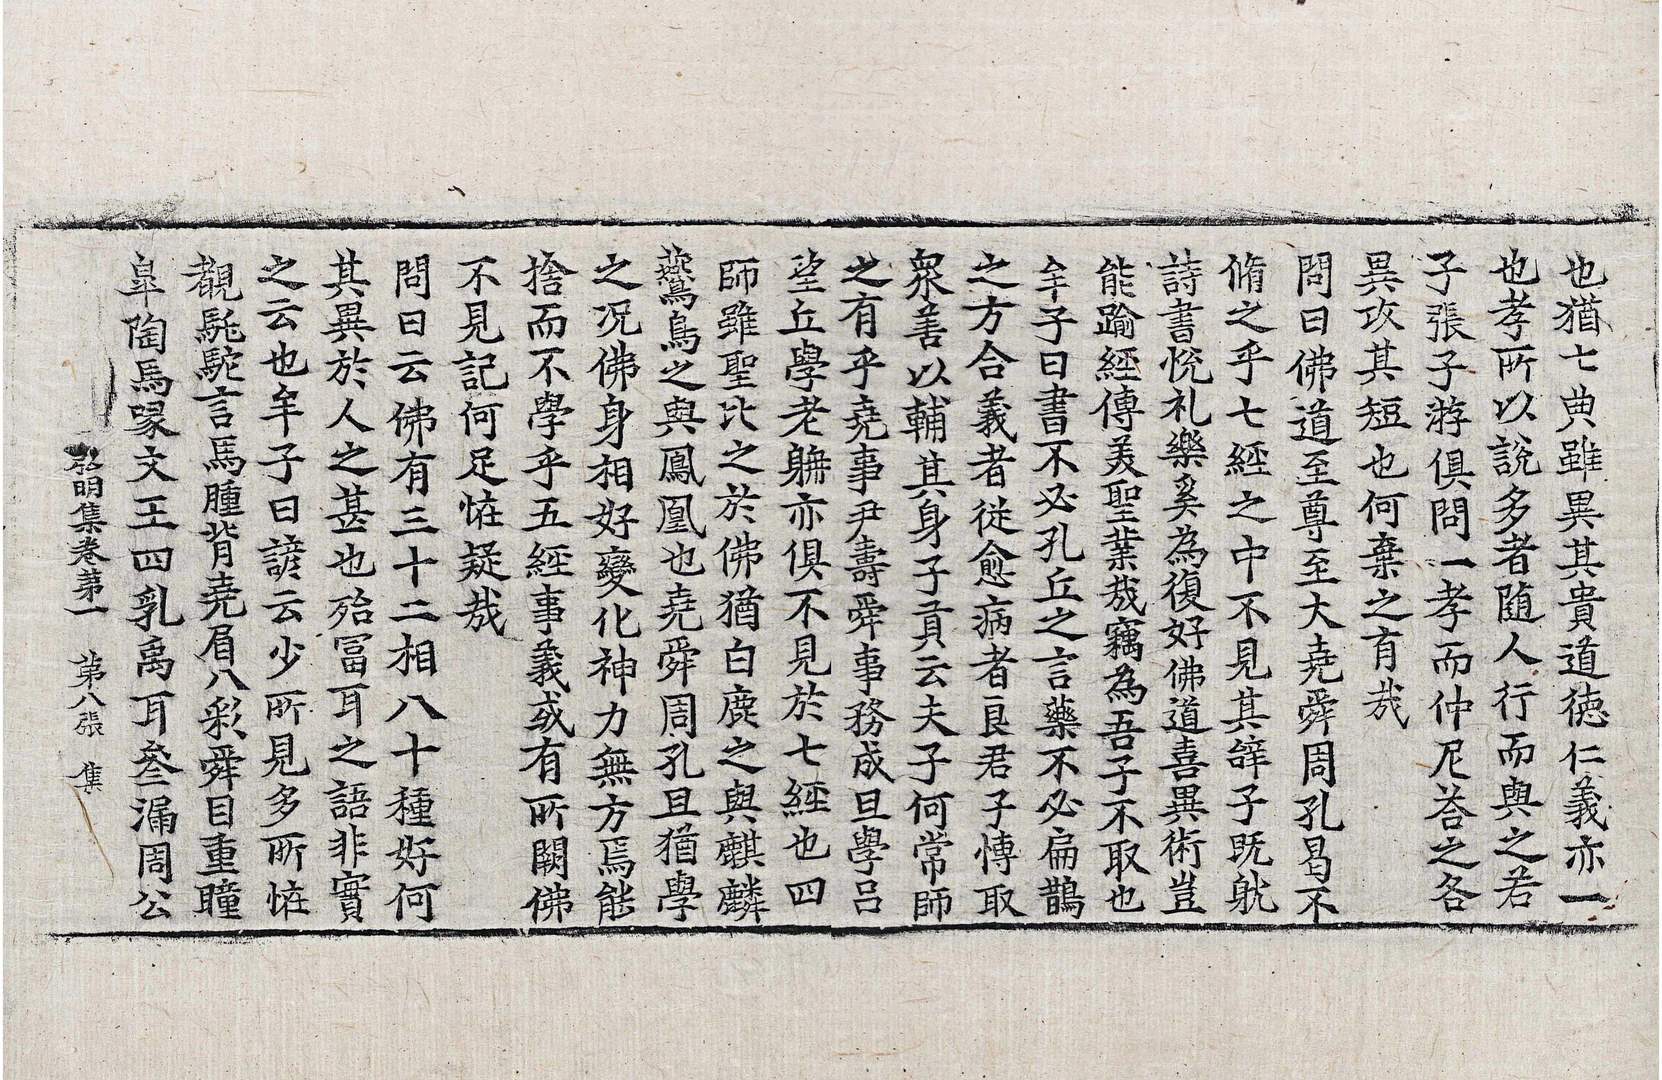 也猶七典雖異其貴道徳仁義亦一
也孝所以說多者随人行而與之若
子張子游俱問一孝而仲尼荅之各
異攻其短也何棄之有㢤
問曰佛道至尊至大堯舜周孔曷不
脩之乎七經之中不見其辝子既躭
詩書悅礼樂奚為復好佛道喜異術豈
能踰經傳美聖業㢤竊為吾子不取也
牟子曰書不必孔丘之言藥不必扁鵲
之方合義者從愈病者良君子博取
衆善以輔其身子貢云夫子何常師
之有乎堯事尹壽舜事務成旦學吕
望丘學老聃亦俱不見於七經也四
師雖聖比之於佛猶白鹿之與麒麟
鷰鳥之與鳳凰也堯舜周孔且猶學
之况佛身相好變化神力無方焉能
捨而不學乎五經事義或有所闕佛
不見記何足恠疑㢤
問曰云佛有三十二相八十種好何
其異於人之甚也殆冨耳之語非實
之云也牟子曰諺云少所見多所恠
覩馲駝言馬腫背堯眉八彩舜目重瞳
臯陶馬喙文王四乳禹耳叄漏周公
弘明集卷第一 第八張 集